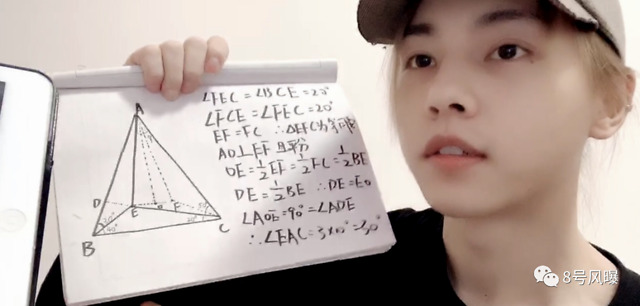 ∠FEC=∠BCE=20°
∠FCE=∠FEC=20°
EF=FC ∴△EFC为等腰
AO⊥EF 且平分
OE=½EF=½FC=½BE
DE=½BE ∴DE=EO
∠AOE=90°=∠ADE
∴∠EAC=3×10°=30°
A
D
E
O
F
B
C
8号风曝